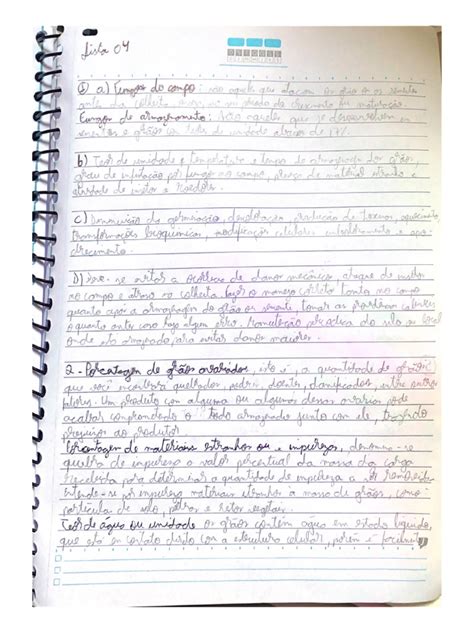 Lista 04
① a) Fungos do campo: são aquele que atacam os grãos ou as sementes
antes da colheita, ou na fase de crescimento ou maturação.
Fungos de armazenamento: São aqueles que se desenvolvem em
sementes e grãos com teor de umidade abaixo de 17%.
b) Teor de umidade e temperatura, tempo de armazenagem dos grãos,
grau de infestação por fungos no campo, presença de material estranho e
atividade de insetos e roedores.
c) Diminuição da germinação, descoloração, produção de toxinas, aquecimento,
transformações bioquímicas, modificações celulares, emboloramento e apo-
drecimento.
d) Deve-se evitar a ocorrência de danos mecânicos, ataque de insetos
no campo e atraso na colheita, fazer o manejo tanto no campo
quanto após a armazenagem do grão ou semente, tomar as
o quanto antes caso haja algum erro. periódica do silo ou local
onde está armazenado, para evitar danos maiores.
2 - Porcentagem de grãos avariados, isto é, a quantidade de grãos
que você encontrará quebrados, podre, doentes, danificados, entre outros
fatores. Um produto com alguma ou algumas dessas avarias pode
acabar comprometendo o todo armazenado junto com ele, trazendo
prejuízos ao produtor.
Porcentagem de materiais estranhos ou e impureza, denomina-se
quebra de impureza o valor percentual da massa da carga
recebida para determinar a quantidade de impureza a
entende-se por impureza materiais estranhos à massa de grãos, como
partícula de solo, pedras e restos vegetais.
Teor de água ou umidade os grãos contém água em estado líquido,
que está em contato direto com a estrutura celular, porém é facilmente